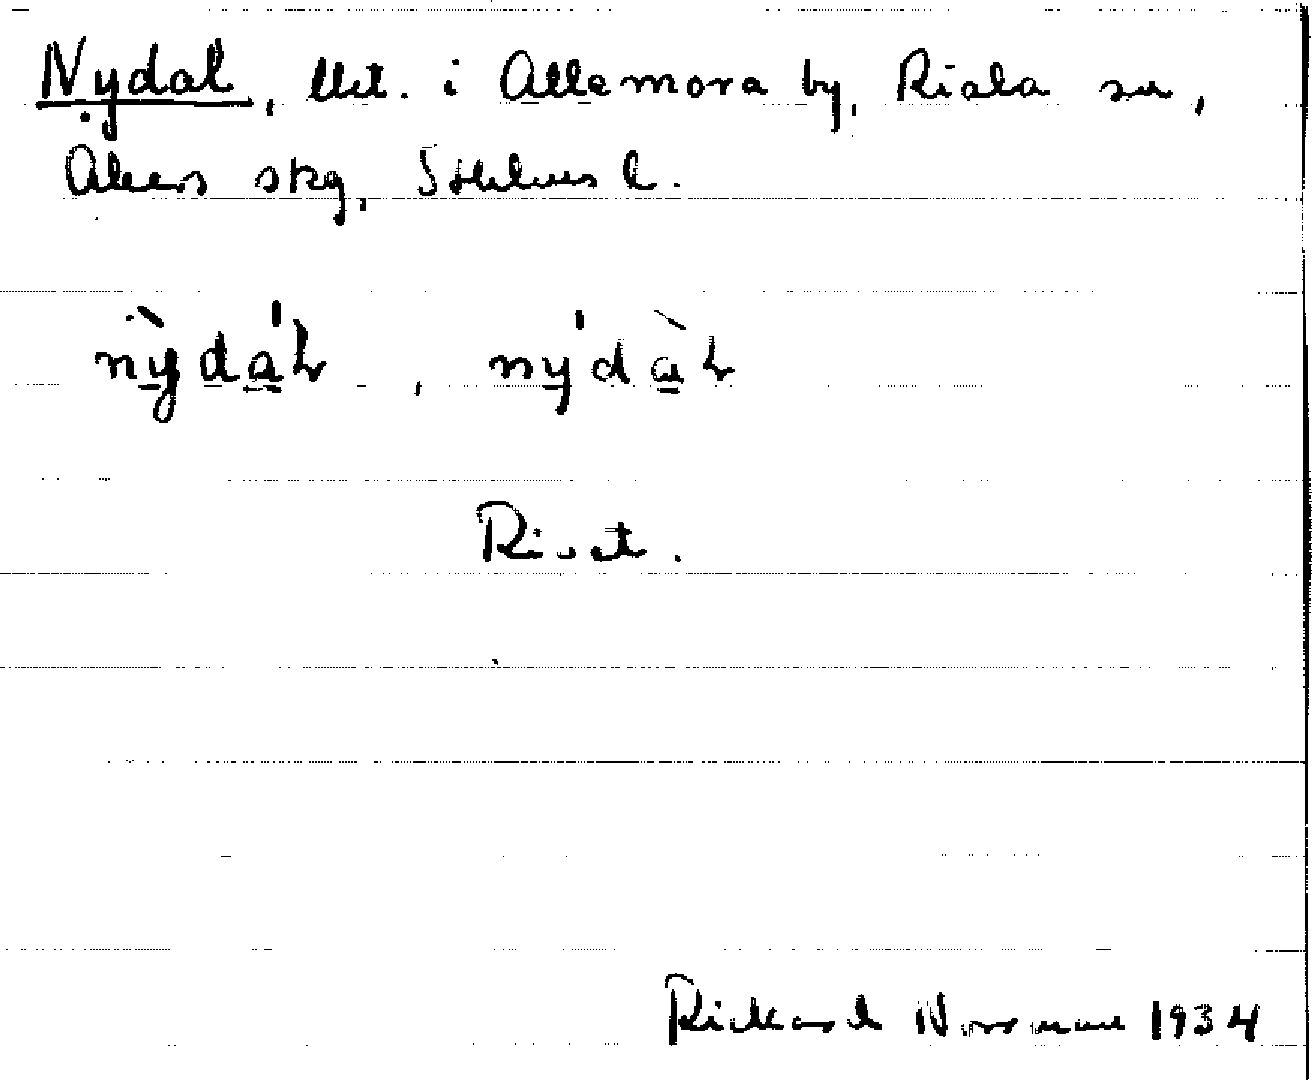 Nydal, lht. i Allmora by, Riala sn,
Åkers skg, Sthlms l.
nỳdáł, nýdàł
Rivet.
Rickard Norrman 1934